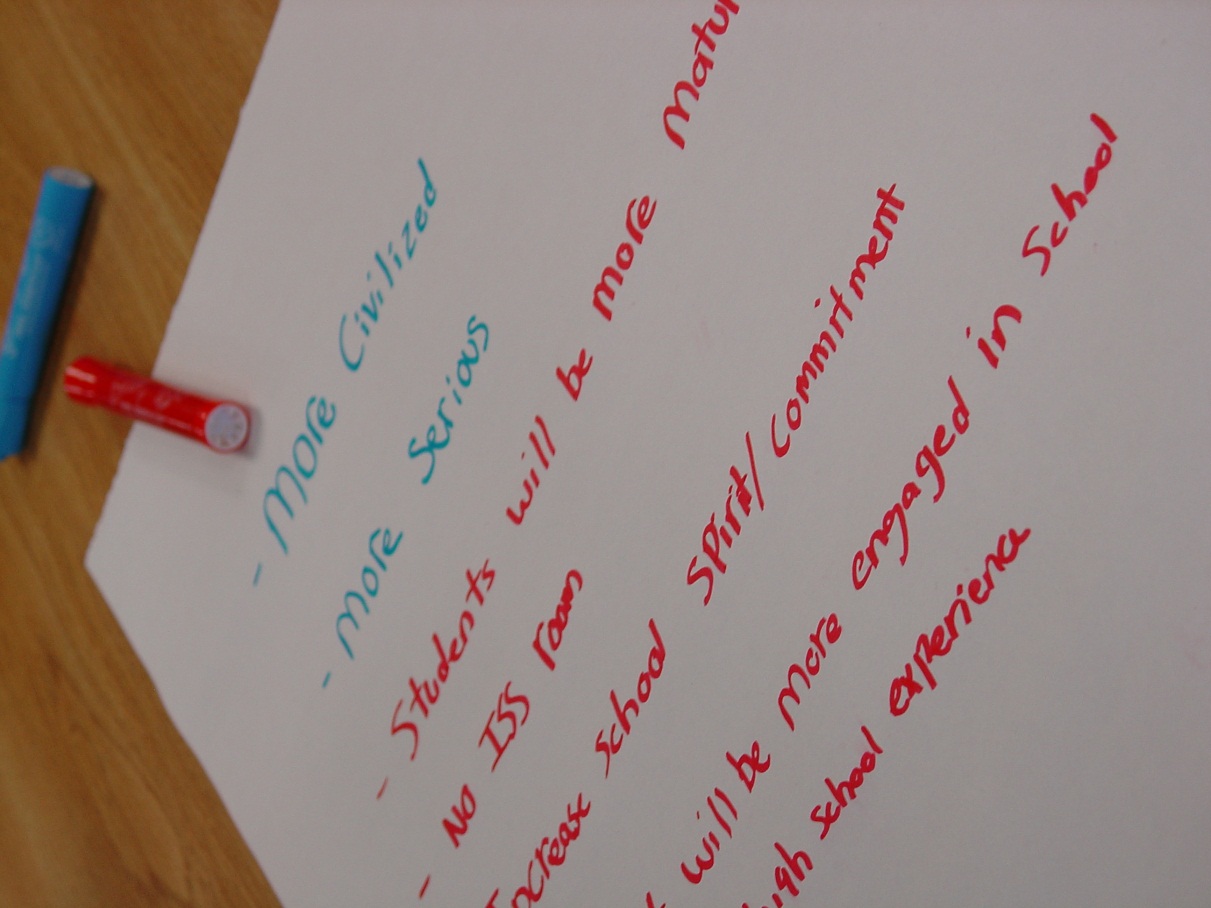 - More Civilized
- More Serious
- Students will be more
- No ISS room
Increase School Spirit/Commitment
will be more engaged in School
school experience